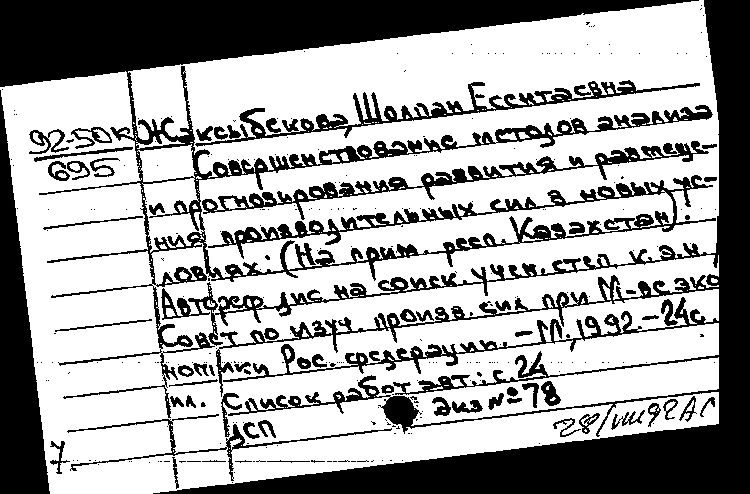 92-50к Жаксыбекова, Шолпан Есентаевна
695 Совершенствование методов анализа
и прогнозирования развития и размеще-
ния производительных сил в новых ус-
ловиях: (На прим. респ. Казахстан):
Автореф. дис. на соиск. учен. степ. к.э.н. /
Совет по изуч. произв. сил при М-ве эко
номики Рос. федерации. - М., 1992. - 24с.
ил. Список работ авт.: с. 24
ДСП Экз № 78
28/VIII 92
У.